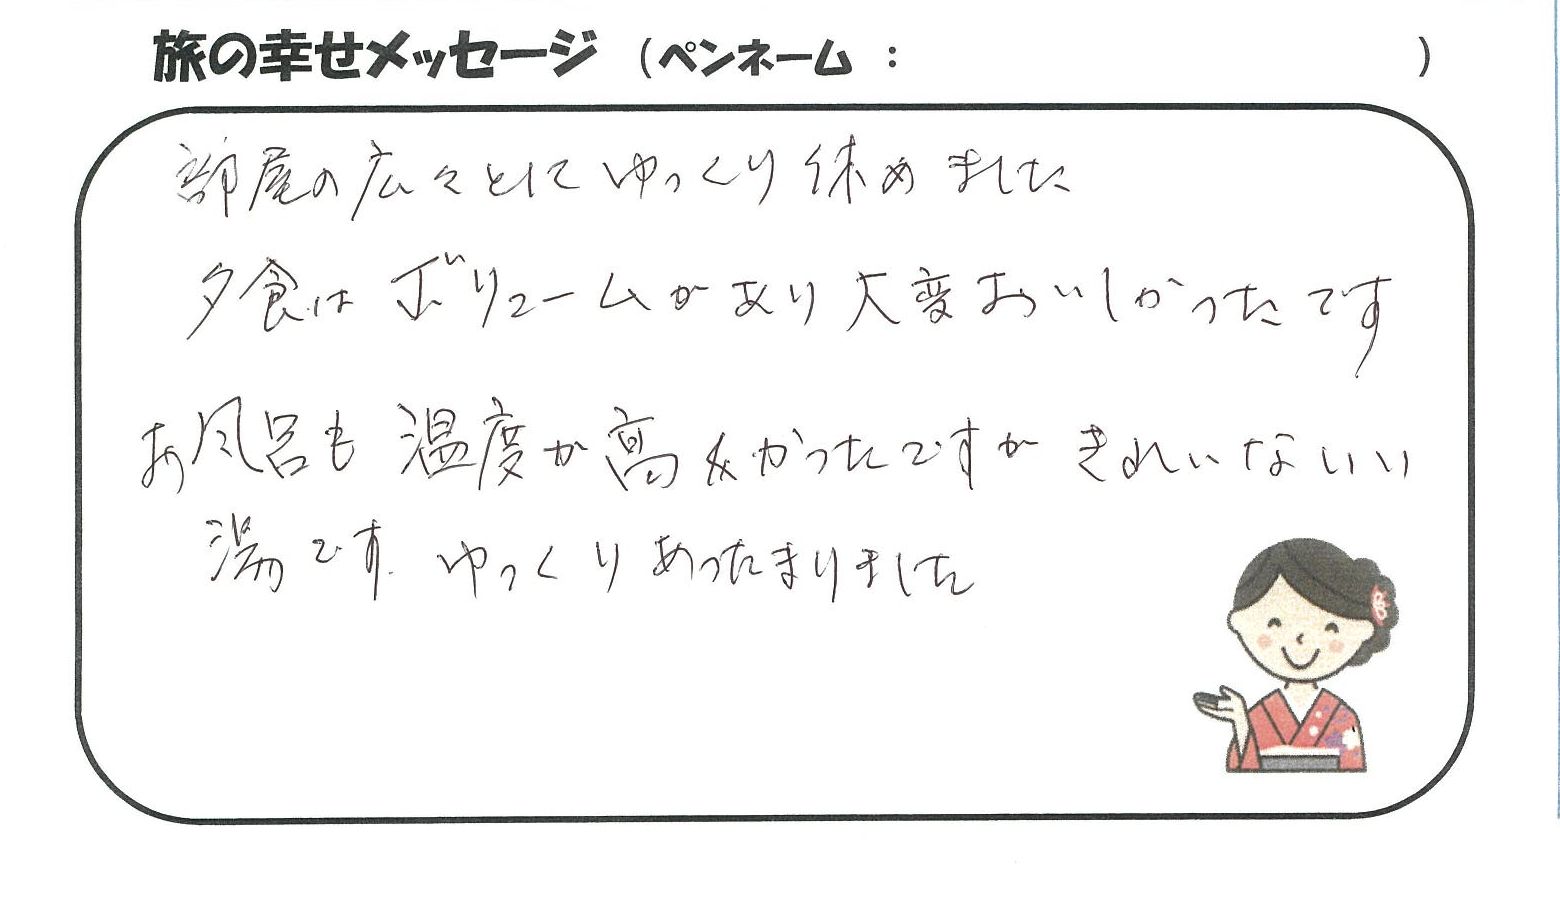 旅の幸せメッセージ （ペンネーム ： ）
部屋の広々としてゆっくり休めました
夕食はボリュームがあり大変おいしかったです
お風呂も温度が高かったですがきれいないい
湯です. ゆっくりあったまりました